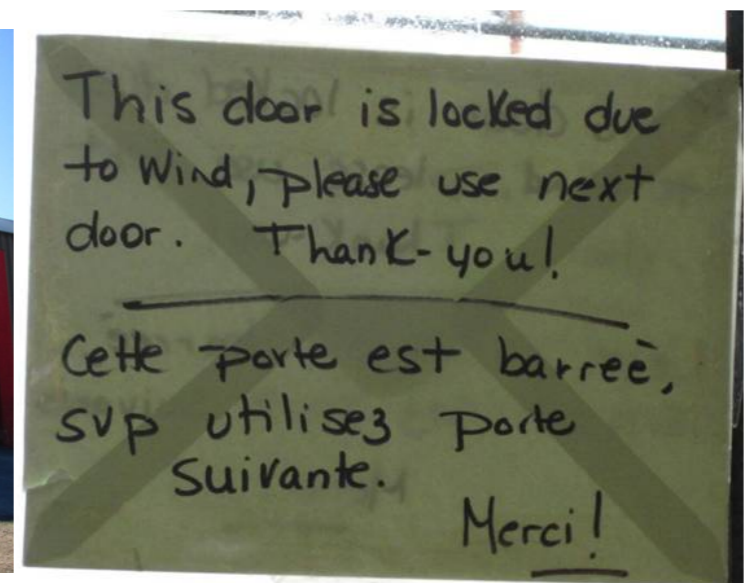 This door is locked due
to Wind, please use next
door. Thank-you!
Cette porte est barreè,
svp utilisez porte
suivante.
Merci!